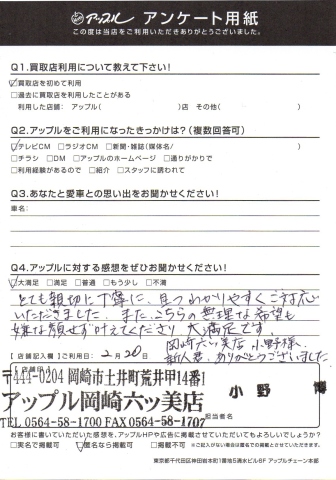 アップル アンケート用紙
この度は当店をご利用いただきありがとうございました。
Q1.買取店利用について教えて下さい!
☑買取店を初めて利用
□過去に買取店を利用したことがある
利用した店舗: アップル( )店 その他( )
Q2.アップルをご利用になったきっかけは?(複数回答可)
☑テレビCM □ラジオCM □新聞・雑誌(媒体名/ )
□チラシ □DM □アップルのホームページ □通りがかりで
□利用経験があるので □紹介 □スタッフに誘われて
Q3.あなたと愛車との思い出をお聞かせください!
車名:
Q4.アップルに対する感想をぜひお聞かせください!
☑大満足 □満足 □普通 □もう少し □不満
とても親切に丁寧に、且つわかりやすくご対応
いただきました。また、こちらの無理な希望も
嫌な顔せず叶えてくださり大満足です。
岡崎六ッ美店 小野様、
新人君、ありがとうございました。
【店舗記入欄】ご利用日: 2月20日
【店舗印】
〒444-0204 岡崎市土井町荒井甲14番1
アップル岡崎六ッ美店
TEL 0564-58-1700 FAX 0564-58-1707
担当者名
小野 博
お客様に書いていただいた感想を、アップルHPや広告に掲載させていただいてもよろしいでしょうか?
□実名で掲載可 ☑匿名なら掲載可 □掲載不可 ※ご記入がない場合は匿名での掲載とさせていただきます。
東京都千代田区神田岩本町1番地5清水ビル6F アップルチェーン本部